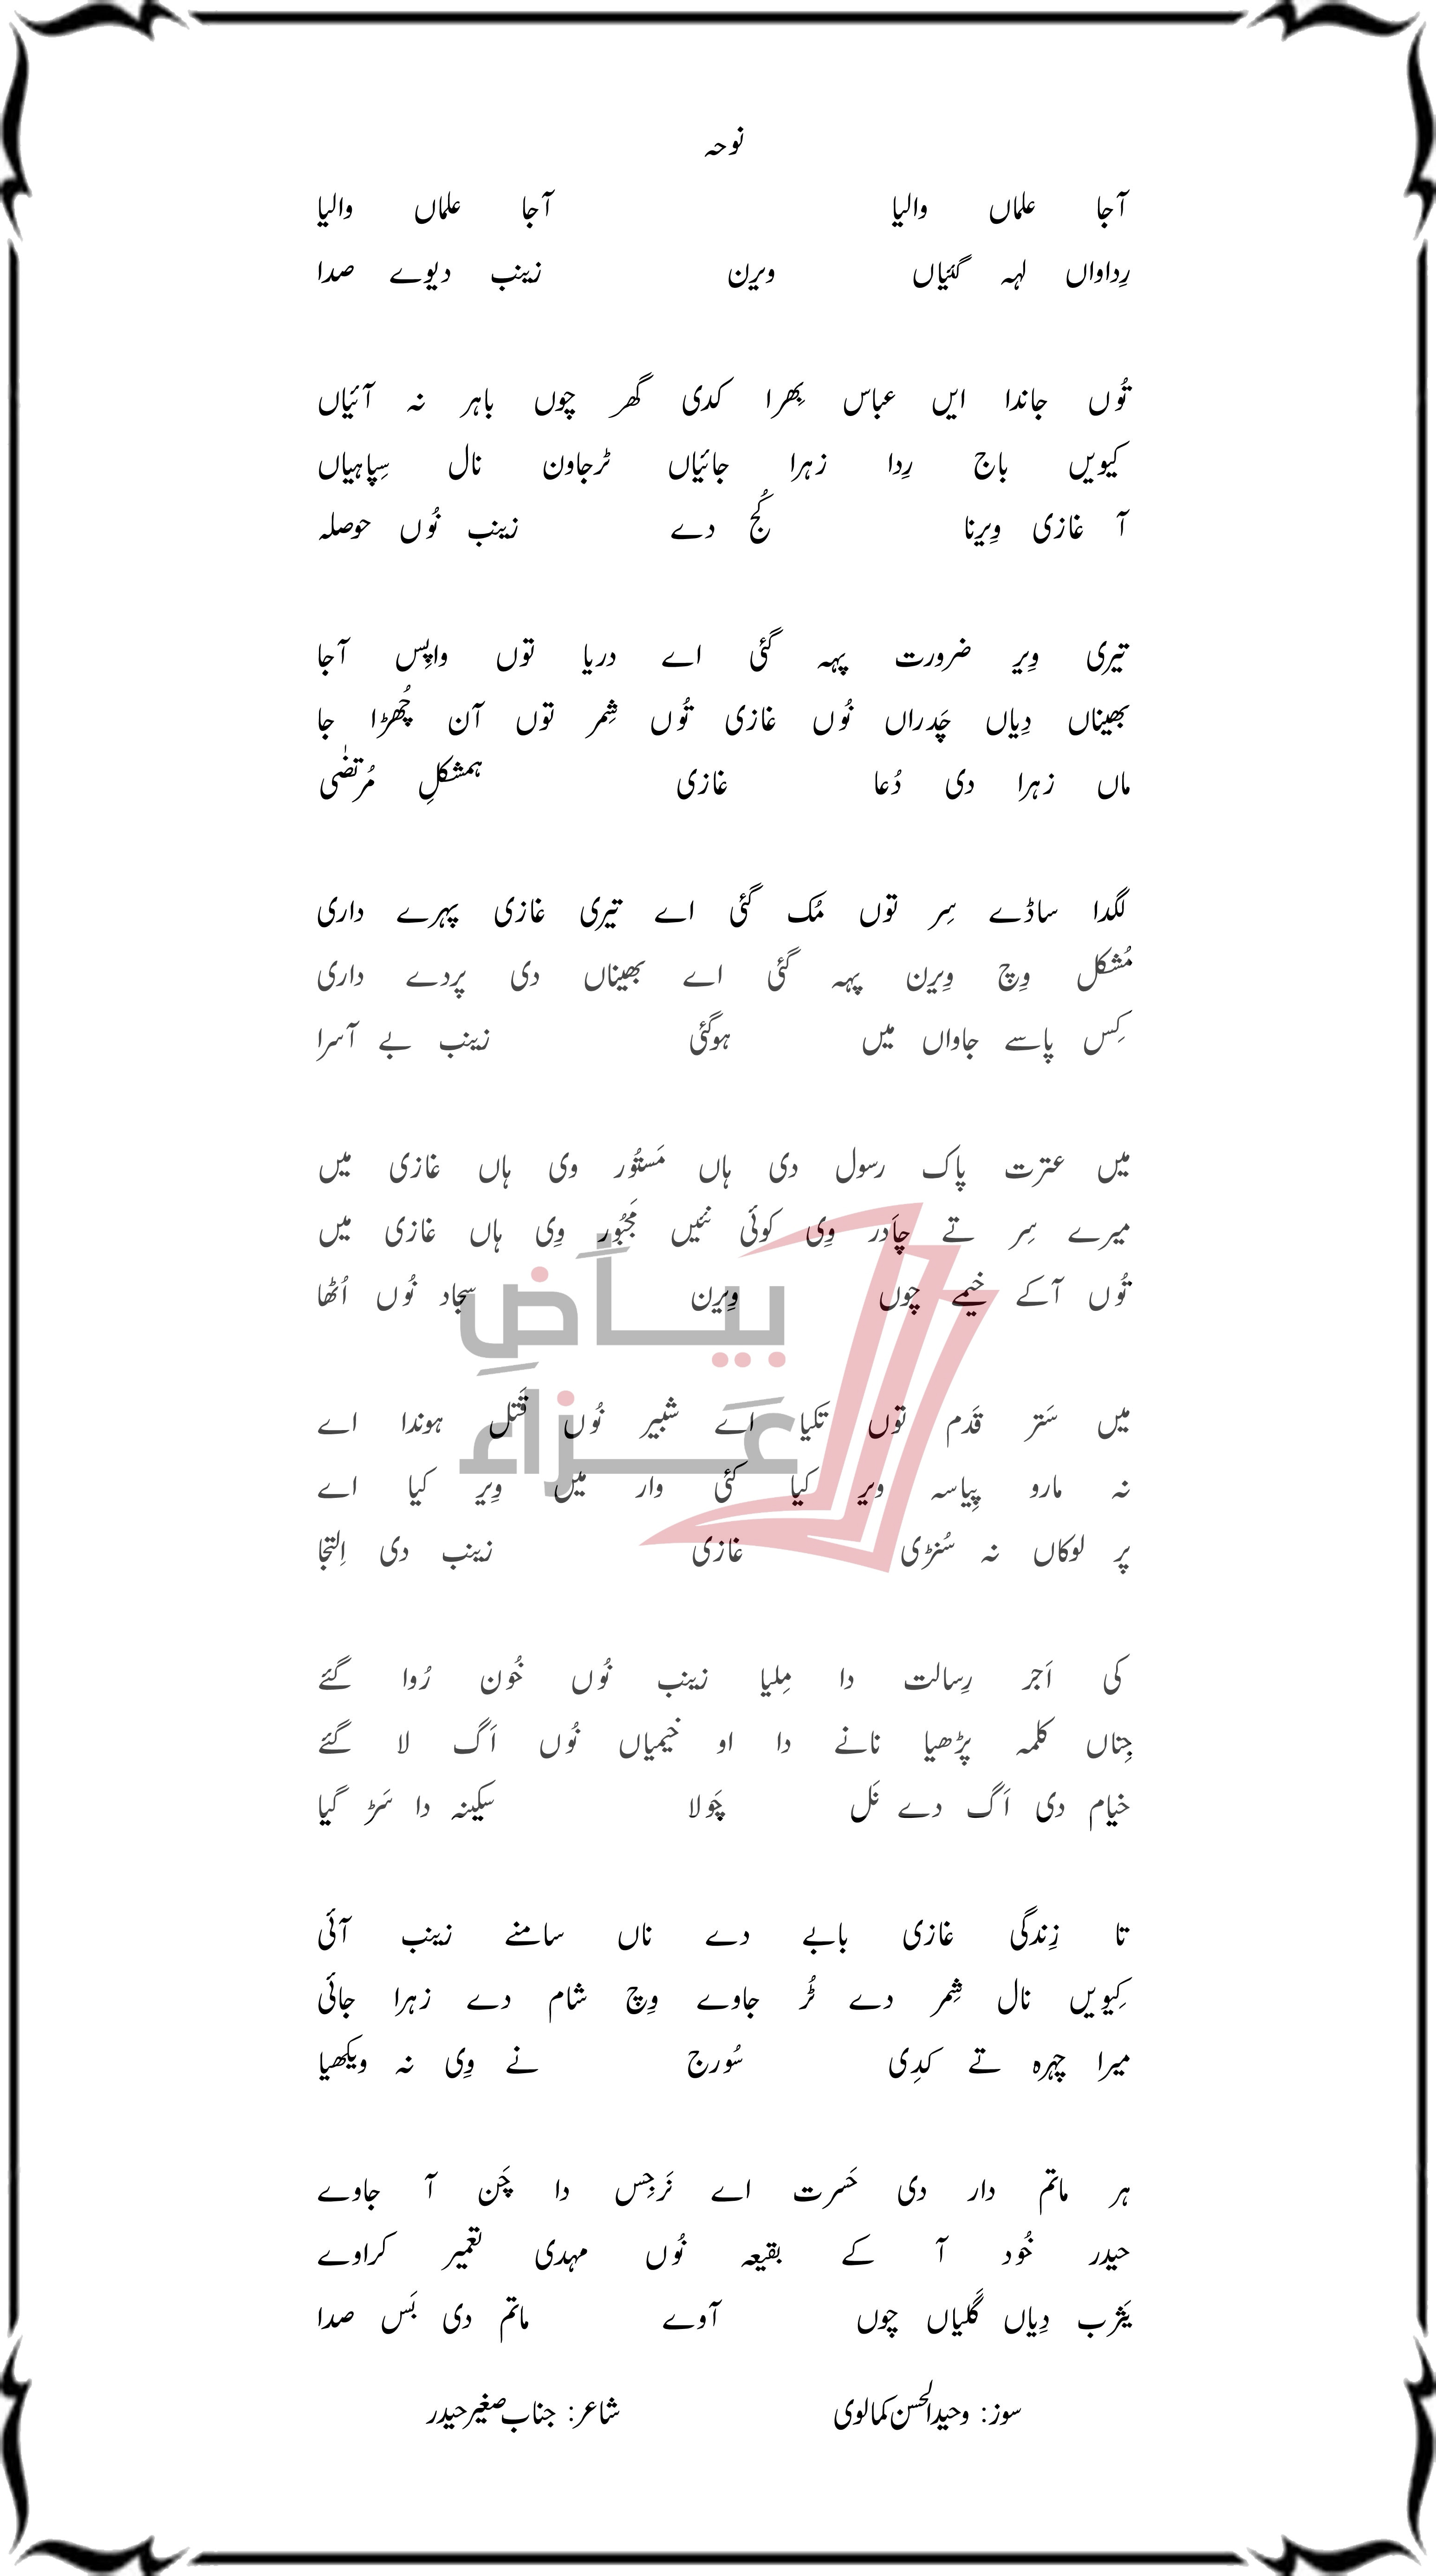 نوحہ
آجا علماں والیا آجا علماں والیا
رِداواں لہہ گئیاں ویرن زینب دیوے صدا
تُوں جاندا ایں عباس بِھرا کدی گھر چوں باہر نہ آئیاں
کیویں باج رِدا زہرا جائیاں ٹرجاون نال سِپاہیاں
آ غازی وِیرنا کُج دے زینب نُوں حوصلہ
تیری وِیر ضرورت پہہ گئی اے دریا توں واپِس آجا
بھیناں دِیاں چَدراں نُوں غازی تُوں شِمر توں آن چُھڑا جا
ماں زہرا دی دُعا غازی ہمشکلِ مُرتضٰی
لگدا ساڈے سِر توں مُک گئی اے تیری غازی پہرے داری
مُشکل وِچ وِیرن پہہ گئی اے بھیناں دی پردے داری
کِس پاسے جاواں میں ہوگئی زینب بے آسرا
میں عترت پاک رسول دی ہاں مَستُور وی ہاں غازی میں
میرے سِر تے چاَدر وِی کوئی نئیں مَجبُور وِی ہاں غازی میں
تُوں آکے خیمے چوں وِیرن سجاد نُوں اُٹھا
بیاضِ
عَزاء
میں سَتر قدَم توں تکیا اے شبیر نُوں قَتل ہوندا اے
نہ مارو پِیاسہ ویر کیا کئی وار میں وِیر کیا اے
پر لوکاں نہ سُنڑی غازی زینب دی اِلتجا
کی اَجر رِسالت دا مِلیا زینب نُوں خُون رُوا گئے
جِتاں کلمہ پڑھیا نانے دا او خیمیاں نُوں اَگ لا گئے
خیام دی اَگ دے نَل چَولا سکینہ دا سَڑ گیا
تا زِندگی غازی بابے دے ناں سامنے زینب آئی
کِیویں نال شِمر دے ٹُر جاوے وِچ شام دے زہرا جائی
میرا چہرہ تے کدِی سُورج نے وِی نہ ویکھیا
ہر ماتم دار دی حَسرت اے نَرجِس دا چَن آ جاوے
حیدر خُود آ کے بقیعہ نُوں مہدی تعمیر کراوے
یَثرب دِیاں گَلیاں چوں آوے ماتم دی بَس صدا
سوز: وحیدالحسن کمالوی شاعر: جناب صغیر حیدر